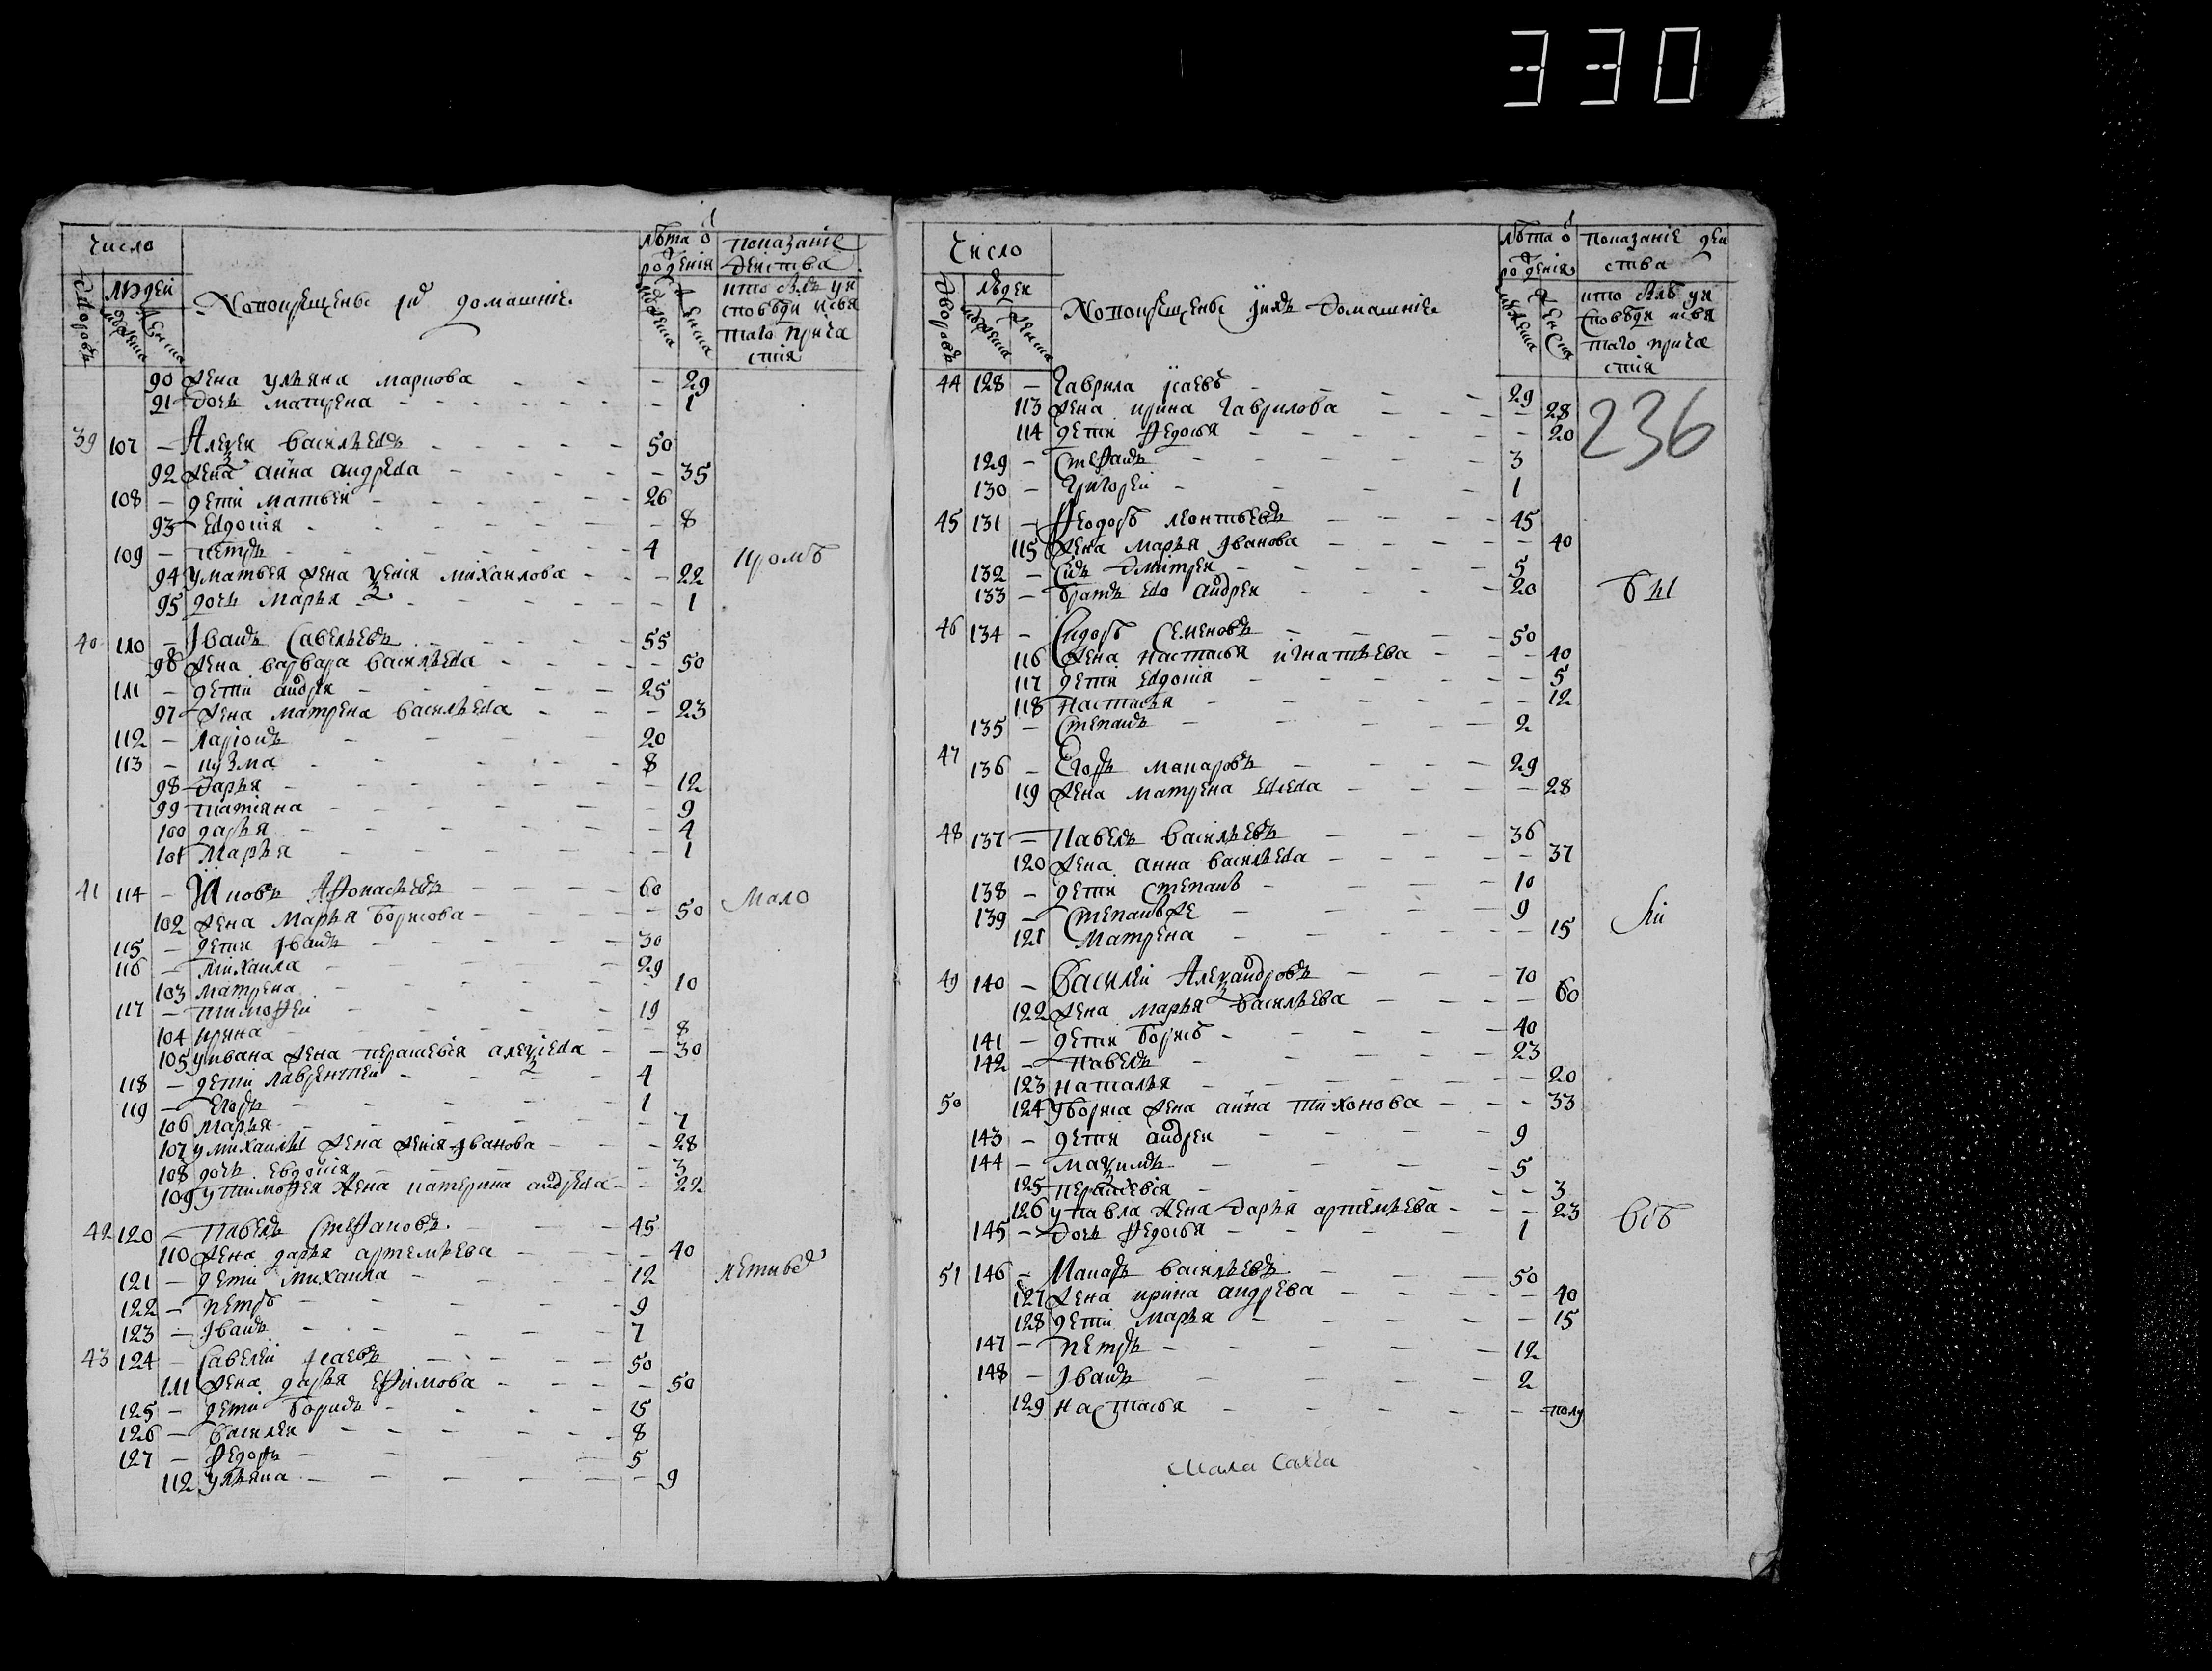 330
Число
Дворовъ
людей
мужеска
женска
Копорщены и домашние
лѣта ѿ рожденія
мужеска
женска
показаніе действа
кто былъ у исповѣди и святаго причастія
90 жена ульяна маркова - - - 29
91 дочь матрена - - - 1
39 107 - Алеѯеи васильевъ - - - 50
92 жена анна андреева - - - 35
108 - дети матвеи - - - 26
93 - евдокия - - - 8
109 - петръ - - - 4
кромѣ
94 у матвея жена ѯения михаилова - - - 22
95 дочь марья - - - 1
40 110 - Иванъ Савельевъ - - - 55
96 жена варвара васильева - - - 50
111 - дети андреи - - - 25
97 - жена матрена васильева - - - 23
112 - ларионъ - - - 20
113 - кузма - - - 8
98 - дарья - - - 12
99 - татияна - - - 9
100 дарья - - - 4
101 марья - - - 1
41 114 - Яковъ Афонасьевъ - - - 60
мало
102 жена марья борисова - - - 50
115 - дети иванъ - - - 30
116 - михаила - - - 29
103 матрена - - - 10
117 - тимофеи - - - 19
104 ирина - - - 8
105 у ивана жена перасковия алеѯеева - - 30
118 - дети лаврентеи - - - 4
119 - егоръ - - - 1
106 марья - - - 7
107 у михаилы жена ѯения иванова - - - 28
108 дочь евдокия - - - 3
109 у тимофея жена катерина андреева - - 22
42 120 - павелъ стефановъ - - - 45
110 жена дарья артемьева - - - 40
121 - дети михаила - - - 12
122 - петръ - - - 9
123 - иванъ - - - 7
43 124 - савелеи исаевъ - - - 50
111 жена дарья ефимова - - - 50
125 - дети борисъ - - - 15
126 - василеи - - - 8
127 - федоръ - - - 5
112 ульяна - - - 9
Число
Дворовъ
людеи
мужеска
женска
Копорщены и ихъ домашние
лѣта ѿ рожденія
мужеска
женска
показаніе действа
кто былъ у исповѣди и святаго причастія
236
44 128 - Гаврила исаевъ - - - 29
113 жена ирина гаврилова - - - 28
114 дети федосья - - - 20
129 - стефанъ - - - 3
130 - григореи - - - 1
45 131 - Феодоръ леонтьевъ - - - 45
115 жена марья иванова - - - 40
132 - сынъ дмитреи - - - 5
133 - братъ ево андреи - - - 20
бы
46 134 - Сидоръ семеновъ - - - 50
116 жена настасья игнатьева - - - 40
117 дети евдокия - - - 5
118 настасья - - - 12
135 - степанъ - - - 2
47 136 - Егоръ макаровъ - - - 29
119 жена матрена евсеева - - - 28
48 137 - Павелъ василѣевъ - - - 36
120 жена анна васильева - - - 37
138 - дети степанъ - - - 10
139 - степанъ же - - - 9
121 матрена - - - 15
ли
49 140 - Василеи Алеѯандровъ - - - 70
122 жена марья васильева - - - 60
141 - дети борисъ - - - 40
142 - павелъ - - - 23
123 наталья - - - 20
50 124 у бориса жена анна тихонова - - - 33
143 - дети андреи - - - 9
144 - маѯимъ - - - 5
125 перасковия - - - 3
126 у павла жена дарья артемьева - - - 23
всѣ
145 - дочь федосья - - - 1
51 146 - Макаръ васильевъ - - - 50
127 жена ирина андреева - - - 40
128 дети марья - - - 15
147 - петръ - - - 12
148 - иванъ - - - 2
129 настасья - - - полу